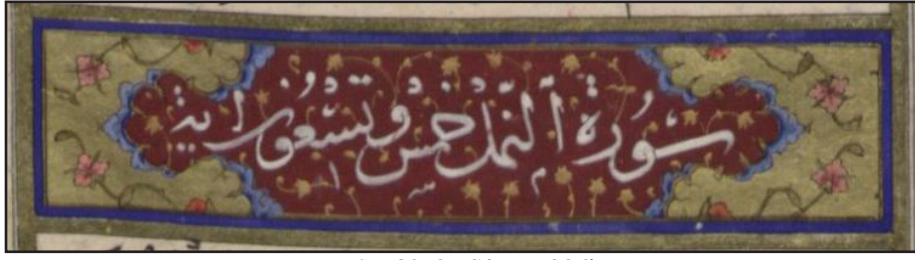 سُورَةُ ٱلنَّمْلِ خَمْسٌ وَتِسْعُونَ اٰيَةً